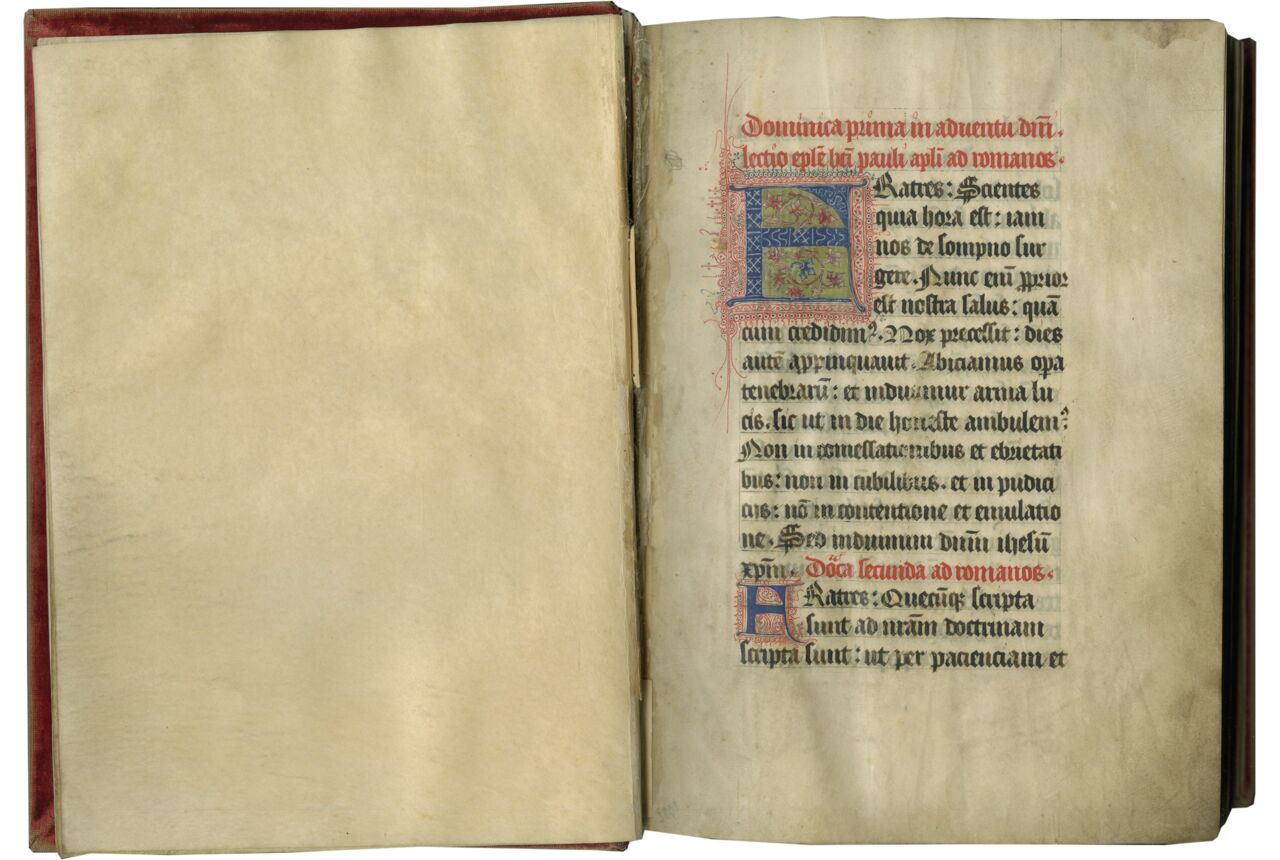 Dominica prima in aduentu dn̄i.
lectio ep̄le bt̄i pauli apl̄i ad romanos.
FRatres: Scientes
quia hora est: iam
nos de sompno sur
gere. Nunc eni̅ ꝓprior
est nostra salus: qua̅
cum credidimꝰ. Nox precessit: dies
aute̅ appinquauit. Abiciamus oꝑa
tenebraru̅: et induamur arma lu
cis. sic ut in die honeste ambulemꝰ:
Non in comessationibus et ebrietati
bus: non in cubilibus. et in pudici
cijs: no̅ in contentione et emulatio
ne. Sed induimini dn̄m ihesu̅
xp̄m. Do̅ica secunda ad romanos.
FRatres: Quecu̅qꝫ scripta
sunt ad nr̄am doctrinam
scripta sunt: ut per pacienciam et